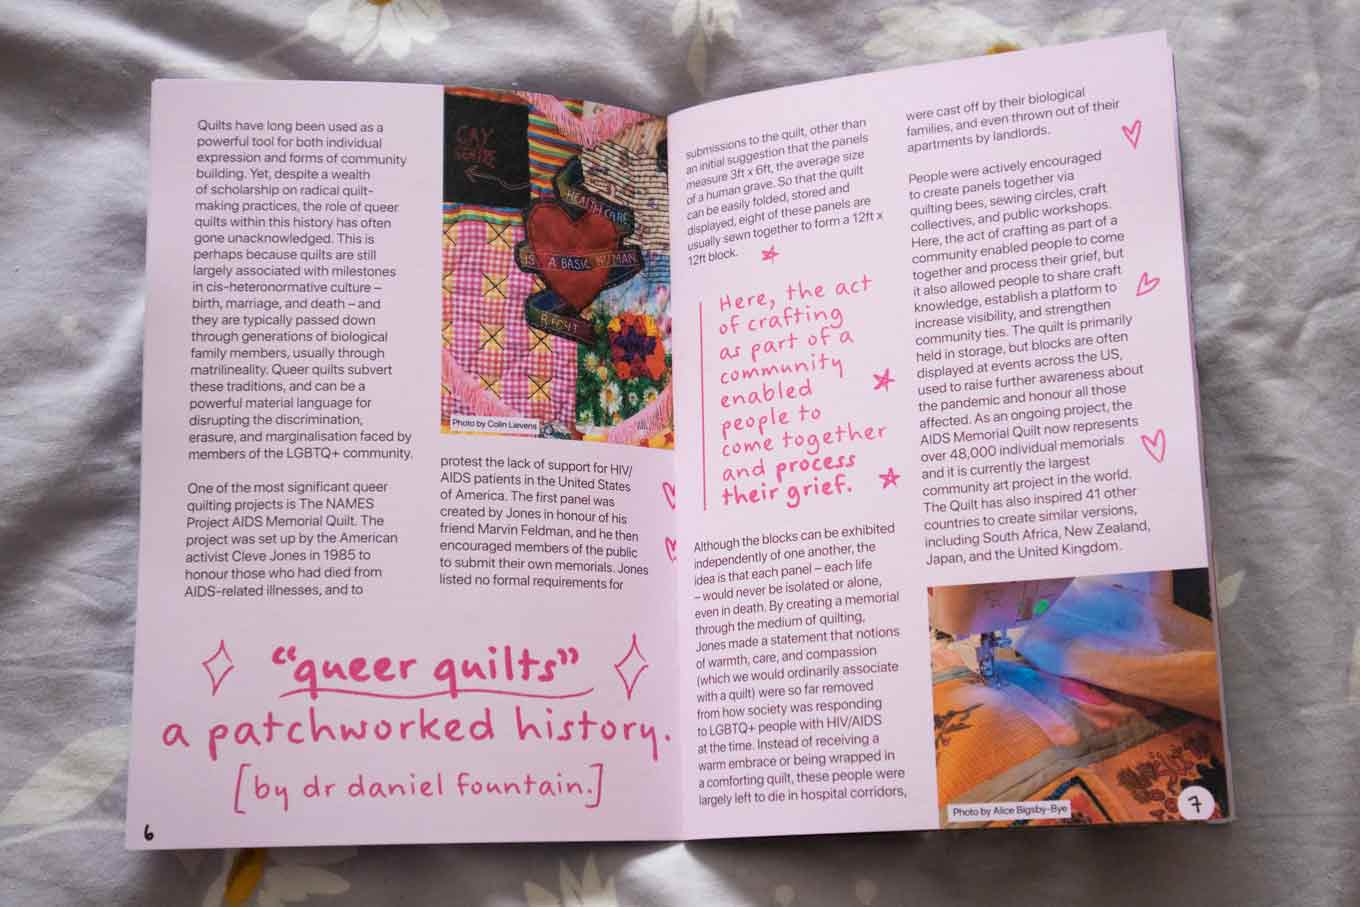 Quilts have long been used as a
powerful tool for both individual
expression and forms of community
building. Yet, despite a wealth
of scholarship on radical quilt-
making practices, the role of queer
quilts within this history has often
gone unacknowledged. This is
perhaps because quilts are still
largely associated with milestones
in cis-heteronormative culture –
birth, marriage, and death – and
they are typically passed down
through generations of biological
family members, usually through
matrilineality. Queer quilts subvert
these traditions, and can be a
powerful material language for
disrupting the discrimination,
erasure, and marginalisation faced by
members of the LGBTQ+ community.
One of the most significant queer
quilting projects is The NAMES
Project AIDS Memorial Quilt. The
project was set up by the American
activist Cleve Jones in 1985 to
honour those who had died from
AIDS-related illnesses, and to
GAY
HEALTHCARE
IS A BASIC HUMAN
RIGHT
Photo by Colin Lievens
protest the lack of support for HIV/
AIDS patients in the United States
of America. The first panel was
created by Jones in honour of his
friend Marvin Feldman, and he then
encouraged members of the public
to submit their own memorials. Jones
listed no formal requirements for
"queer quilts"
a patchworked history.
[by dr daniel fountain.]
6
submissions to the quilt, other than
an initial suggestion that the panels
measure 3ft x 6ft, the average size
of a human grave. So that the quilt
can be easily folded, stored and
displayed, eight of these panels are
usually sewn together to form a 12ft x
12ft block.
Here, the act
of crafting
as part of a
community
enabled
people to
come together
and process
their grief.
Although the blocks can be exhibited
independently of one another, the
idea is that each panel – each life
– would never be isolated or alone,
even in death. By creating a memorial
through the medium of quilting,
Jones made a statement that notions
of warmth, care, and compassion
(which we would ordinarily associate
with a quilt) were so far removed
from how society was responding
to LGBTQ+ people with HIV/AIDS
at the time. Instead of receiving a
warm embrace or being wrapped in
a comforting quilt, these people were
largely left to die in hospital corridors,
were cast off by their biological
families, and even thrown out of their
apartments by landlords.
People were actively encouraged
to create panels together via
quilting bees, sewing circles, craft
collectives, and public workshops.
Here, the act of crafting as part of a
community enabled people to come
together and process their grief, but
it also allowed people to share craft
knowledge, establish a platform to
increase visibility, and strengthen
community ties. The quilt is primarily
held in storage, but blocks are often
displayed at events across the US,
used to raise further awareness about
the pandemic and honour all those
affected. As an ongoing project, the
AIDS Memorial Quilt now represents
over 48,000 individual memorials
and it is currently the largest
community art project in the world.
The Quilt has also inspired 41 other
countries to create similar versions,
including South Africa, New Zealand,
Japan, and the United Kingdom.
Photo by Alice Bigsby-Bye
7